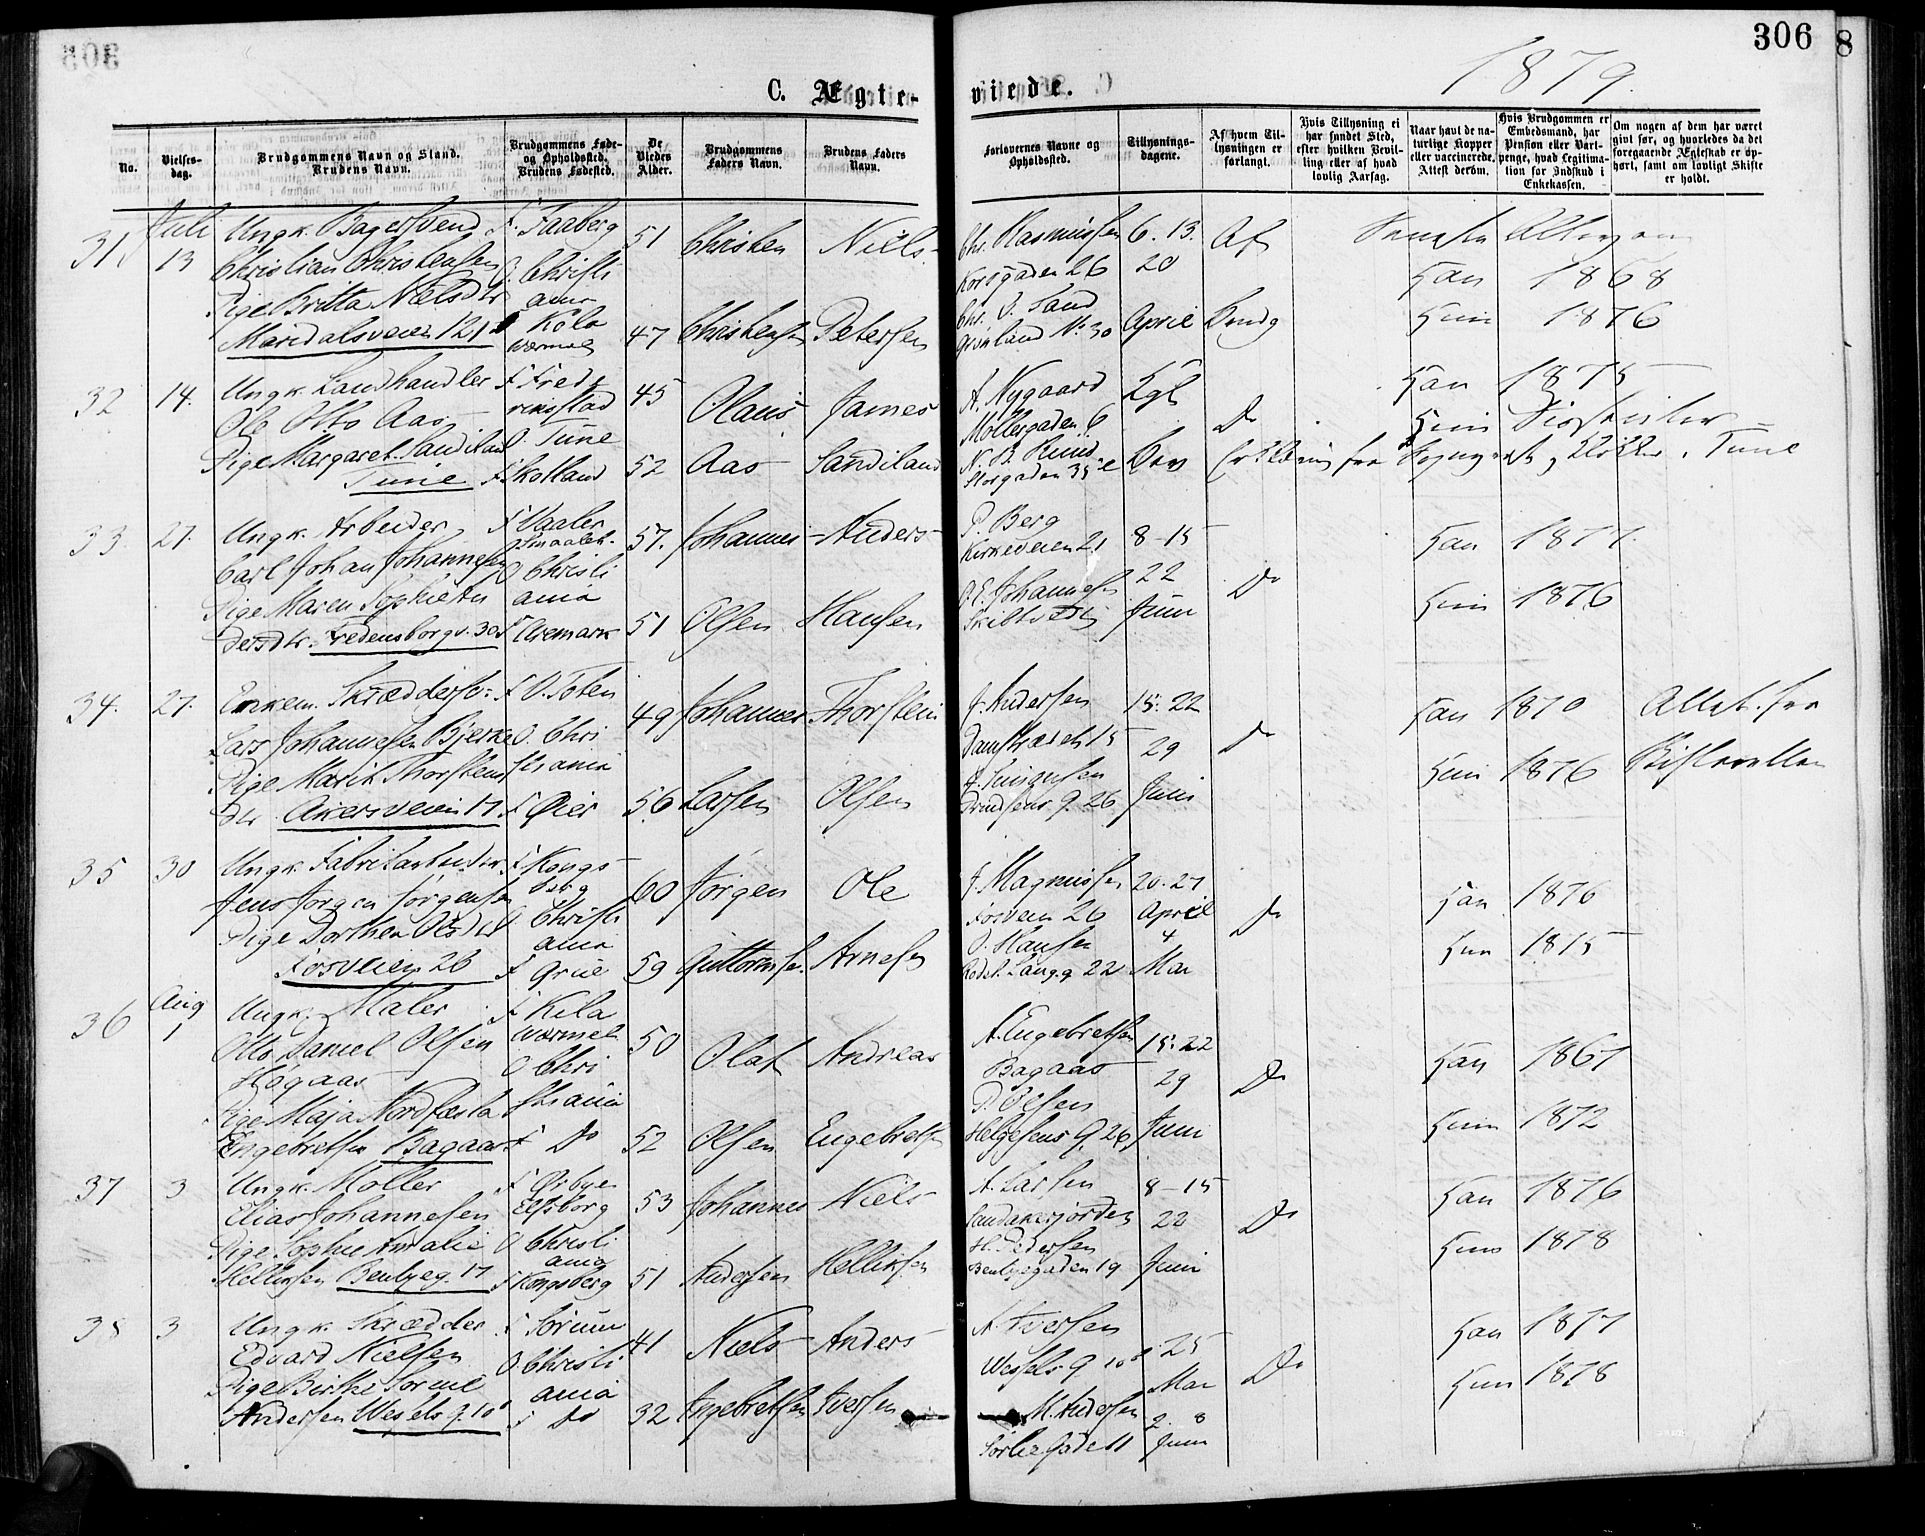 306
8
1879.
C. Ægte-
viede.
No.
Vielses-
dag.
Brudgommens Navn og Stand.
Brudens Navn.
Brudgommens Føde-
og Opholdssted.
Brudens Fødested.
De
Viedes
Alder.
Brudgommens
Faders Navn.
Brudens Faders
Navn.
Forlovernes Navne og
Opholdssted.
Tillysnings-
dagene.
Af hvem Til-
lysningen er
forlangt.
Hvis Tillysning ei
har fundet Sted,
efter hvilken Bevil-
ling eller af hvad
lovlig Aarsag.
Naar havt de na-
turlige Kopper
eller vaccinerede.
Attest derom.
Hvis Brudgommen er
Embedsmand, har
Pension eller Vart-
penge, hvad Legitima-
tion for Indskud i
Enkekassen.
Om nogen af dem har været
gift før, og hvorledes da det
foregaaende Ægteskab er op-
hørt, samt om lovligt Skifte
er holdt.
31 Juli 13
Ungk. Bagersvend
Christian Christensen
Pige Britta Nielsdtr
Maridalsveien 121
F. Faaberg
O. Christi
ania
Kola
Wermel
51
47
Christen
Christensen
Niels
Petersen
Chr. Rasmussen
Korsgaden 26
Chr. O. Sand
Grønland No 30
6. 13.
20
April
Af
Brudg
Han 1868
Hun 1876
32 14.
Ungk. Landhandler
Ole Otto Aas
Pige Margaret Sandiland
Tune
F Fred
rikstad
O. Tune
F Skotland
45
52
Olaus
Aas
James
Sandiland
A. Nygaard
Møllergaden 6
Storgaden 35
Kgl
Bev
Do
Han 1875
Hun
Tune
33 27.
Ungk. Arbeider
Carl Johan Johannesen
Pige Maren Sophie An
dersdtr. Fredensborgv. 30
F Vaaler
Smaalen.
O Christi
ania
F Aremark
57.
51
Johannes
Olsen
Anders
Hansen
P. Berg
Kirkeveien 21
O. E. Johannesen
8-15
22
Juni
Do
Han 1877.
Hun 1876
34. 27.
Enkem. Skræddersv:
Lars Johannesen Bjerke
Pige Marit Thorsteins
Dtr Akersveien 17
F O. Toten
O. Chri
stiania
F Øier
49
56
Johannes
Larsen
Thorstein
Olsen
J. Andersen
Damstrædet 15
26
15. 22
29
Juni
Do
Han 1870
Hun 1876
Attest fra
Skifteretten
35 30
Ungk. Fabrikarbeider
Jens Jørgen Jørgensen
Pige Dorthea Olsdtr
Fosveien 26
F. Kongs
berg
O Christi
ania
F Grue
60
59
Jørgen
Guttormsen
Ole
Arnesen
J. Magnussen
Fosveien 26
O. Hansen
Langg 22
20. 27.
April
4
Mai
Do
Han 1876
Hun 1875
36 Aug 1
Ungk. Maler
Otto Daniel Olsen
Høgaas
Pige Maja
Engebretsen Bagaas
F Kila
Wermel
O Chri
stiania
F Do
50
52
Olaf
Olsen
Andreas
Engebretsen
A. Engebretsen
Bagaas
P. Olsen
Helgesens G. 26
15. 22
29
Juni
Do
Han 1867
Hun 1872
37 3
Ungk. Møller
Elias Johannesen
Pige Sophie Amalie
Helliksen Bentseg. 17
F Ørbye
Elfsborg
O Christi
ania
F Kongsberg
53
51
Johannes
Andersen
Niels
Helliksen
A. Larsen
Sandakerjordet
H. Pedersen
Bentsegaden 19
8-15
22
Juni
Do
Han 1876
Hun 1878
38 3
Ungk Skrædder
Edvard Nielsen
Pige Birthe Sorine
Andersen Wessels g. 10
F Sørum
O. Christi
ania
F Do
41
32
Niels
Ingebretsen
Anders
Iversen
A. Iversen
Wessels G 10
M. Andersen
25
Mai
2. 8
Juni
Do
Han 1877
Hun 1878